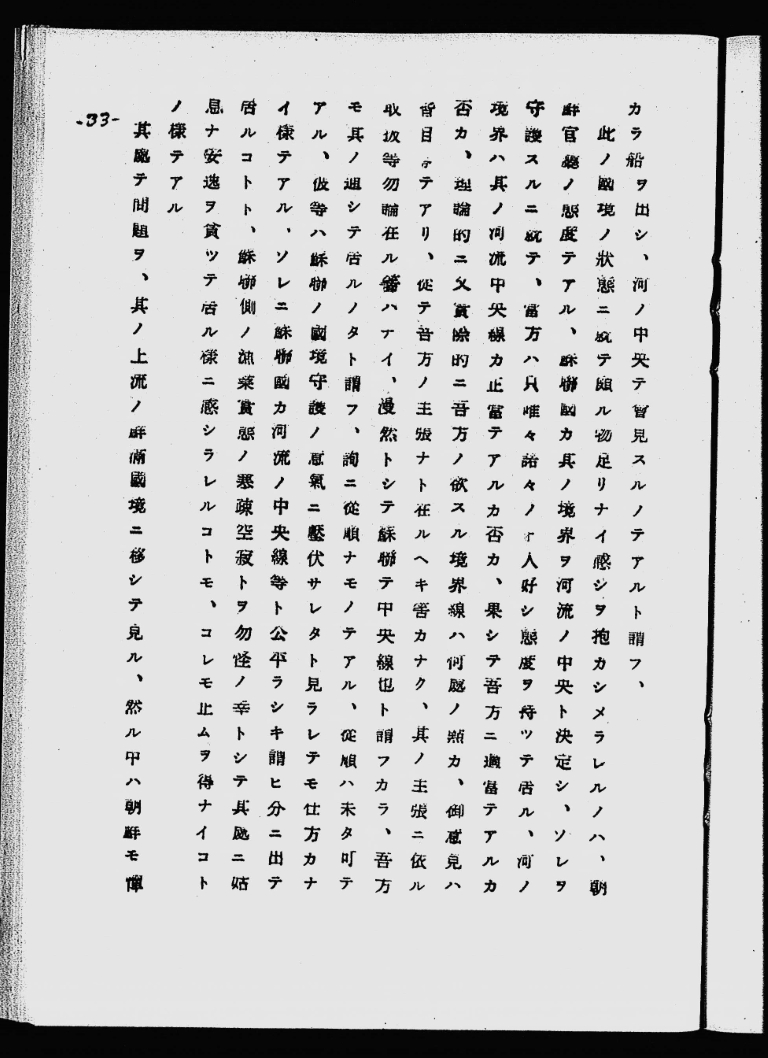 カラ船ヲ出シ、河ノ中央テ會見スルノテアルト謂フ、
此ノ國境ノ狀態ニ就テ頗ル物足リナイ感シヲ抱カシメラレルノハ、朝
鮮官憲ノ態度テアル、蘇聯國カ其ノ境界ヲ河流ノ中央ト決定シ、ソレヲ
守護スルニ就テ、當方ハ只唯々諾々ノオ人好シ態度ヲ持ツテ居ル、河ノ
境界ハ其ノ河流中央線カ正當テアルカ否カ、果シテ吾方ニ適當テアルカ
否カ、理論的ニ又實際的ニ吾方ノ欲スル境界線ハ何處ノ點カ、御意見ハ
皆目テアリ、從テ吾方ノ主張ナト在ルヘキ害カナク、其ノ主張ニ依ル
取扱等勿論在ル筈ハナイ、漫然トシテ蘇聯テ中央線也ト謂フカラ、吾方
モ其ノ通シテ居ルノタト謂フ、洵ニ從順ナモノテアル、從順ハ未タ可テ
アル、彼等ハ蘇聯ノ國境守護ノ意氣ニ壓伏サレタト見ラレテモ仕方カナ
イ樣テアル、ソレニ蘇聯國カ河流ノ中央線等ト公平ラシキ謂ヒ分ニ出テ
居ルコトト、蘇聯側ノ漁業實態ノ寥疎空寂トヲ勿怪ノ幸トシテ其處ニ姑
息ナ安逸ヲ貪ツテ居ル樣ニ感シラレルコトモ、コレモ止ムヲ得ナイコト
ノ樣テアル
其處テ問題ヲ、其ノ上流ノ鮮滿國境ニ移シテ見ル、然ル中ハ朝鮮モ憚
-33-